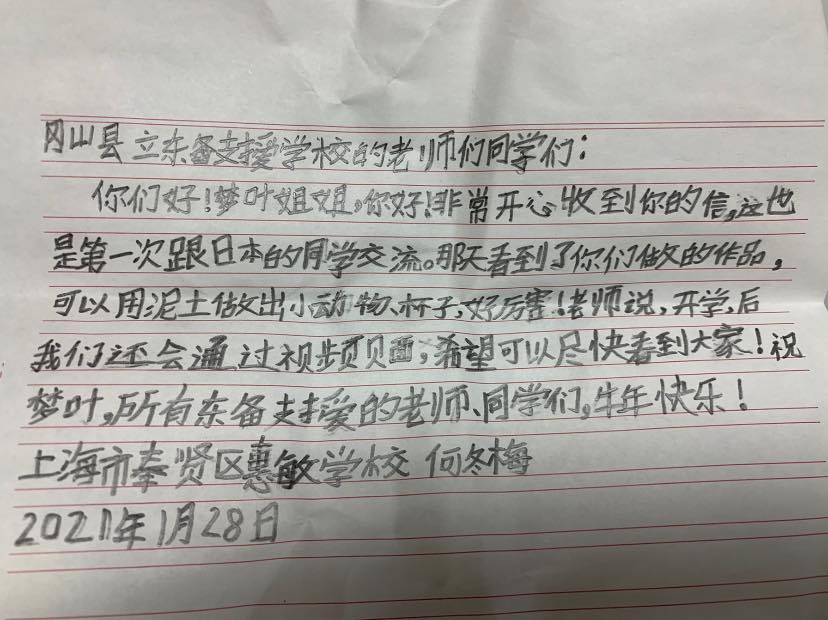 冈山县立东备支援学校的老师们同学们：
你们好！梦叶姐姐，你好！非常开心收到你的信，这也
是第一次跟日本的同学交流。那天看到了你们做的作品，
可以用泥土做出小动物、杯子，好厉害！老师说，开学后
我们还会通过视频见面，希望可以尽快看到大家！祝
梦叶，所有东备支援的老师、同学们，牛年快乐！
上海市奉贤区惠敏学校 何冬梅
2021年1月28日